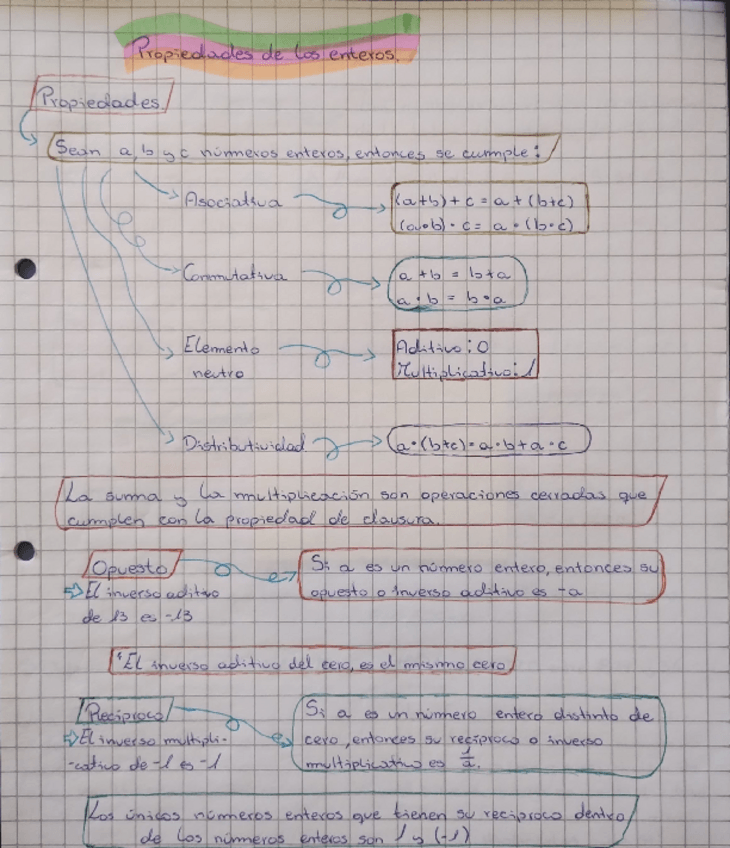 Propiedades de los enteros.
Propiedades
Sean a, b y c números enteros, entonces se cumple:
Asociativa
(a+b)+c = a+(b+c)
(a•b)•c = a•(b•c)
Conmutativa
a+b = b+a
a•b = b•a
Elemento
neutro
Aditivo: 0
Multiplicativo: 1
Distributividad
a•(b+c)=a•b+a•c
La suma y la multiplicación son operaciones cerradas que
cumplen con la propiedad de clausura.
Opuesto
⇨El inverso aditivo
de 13 es -13
Si a es un número entero, entonces su
opuesto o inverso aditivo es -a
*El inverso aditivo del cero, es el mismo cero
Reciproco
⇨El inverso multipli-
-cativo de -1 es -1
Si a es un número entero distinto de
cero, entonces su reciproco o inverso
multiplicativo es 1/a.
Los únicos números enteros que tienen su reciproco dentro
de los números enteros son 1 y (-1)